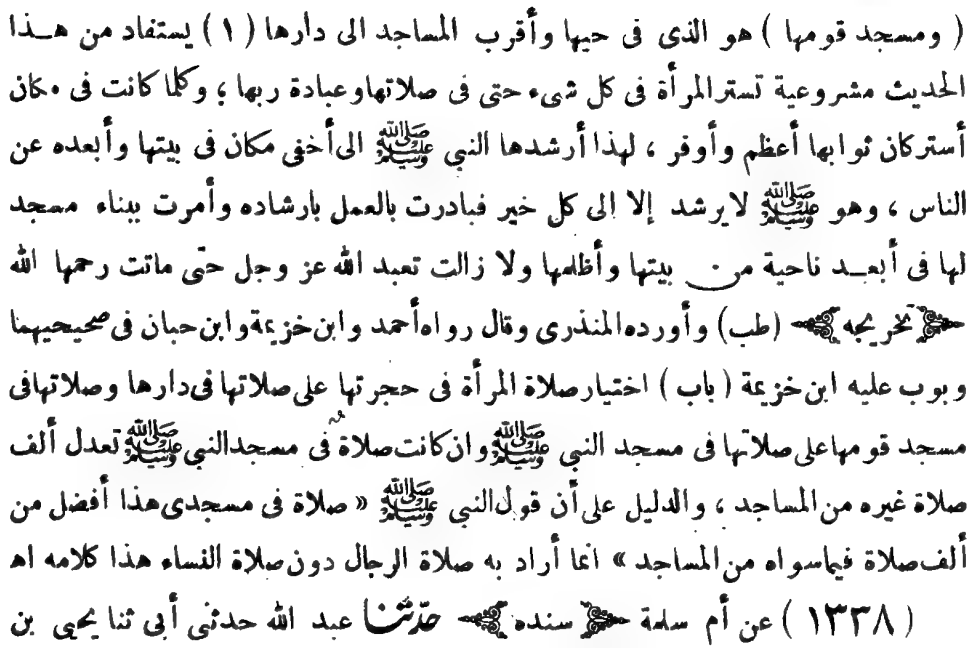 ( ومسجد قومها ) هو الذى فى حيها وأقرب المساجد الى دارها ( ١ ) يستفاد من هــذا
الحديث مشروعية تسترالمرأة فى كل شىء حتى فى صلاتهاوعبادة ربها ؛ وكلما كانت فى مكان
أستركان ثوابها أعظم وأوفر ، لهذا أرشدها النبي ﷺ الى أخفى مكان فى بيتها وأبعده عن
الناس ، وهو ﷺ لايرشد إلا إلى كل خير فبادرت بالعمل بارشاده وأمرت ببناء مسجد
لها فى أبعــد ناحية من بيتها وأظلمها ولا زالت تعبد الله عز وجل حتى ماتت رحمها الله
﴿ تخريجه ﴾ (طب) وأورده المنذرى وقال رواه أحمد وابن خزيمة وابن حبان فى صحيحيهما
وبوب عليه ابن خزيمة ( باب ) اختيار صلاة المرأة فى حجرتها على صلاتها فى دارها وصلاتها فى
مسجد قومها على صلاتها فى مسجد النبي ﷺ وان كانت صلاة فى مسجد النبي ﷺ تعدل ألف
صلاة غيره من المساجد ، والدليل على أن قول النبي ﷺ « صلاة فى مسجدى هذا أفضل من
ألف صلاة فيما سواه من المساجد » انما أراد به صلاة الرجال دون صلاة النساء هذا كلامه اهـ
( ١٣٣٨ ) عن أم سلمة ﴿ سنده ﴾ حدّثنا عبد الله حدثنى أبى ثنا يحيى بن